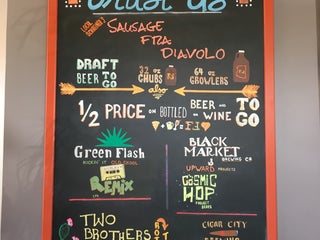 Trust Us
SAUSAGE
FRA
DIAVOLO
DRAFT
BEER TO GO
32 oz CHUBS
64 oz GROWLERS
also
1/2 PRICE ON BOTTLED BEER AND WINE TO GO
Green Flash
REMIX
BLACK
MARKET
BREWING CO
UPWARD PROJECTS
COSMIC
HOP
TWO
BROTHERS
CIGAR CITY
BREWING